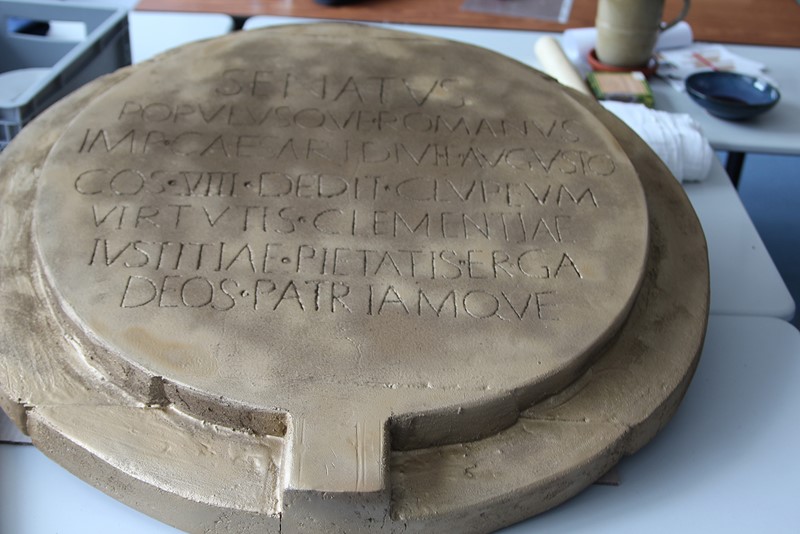 SENATVS
POPVLVSQVE·ROMANVS
IMP·CAESARI·DIVI·F·AVGVSTO
COS·VIII·DEDIT·CLVPEVM
VIRTVTIS·CLEMENTIAE
IVSTITIAE·PIETATIS·ERGA
DEOS·PATRIAMQVE